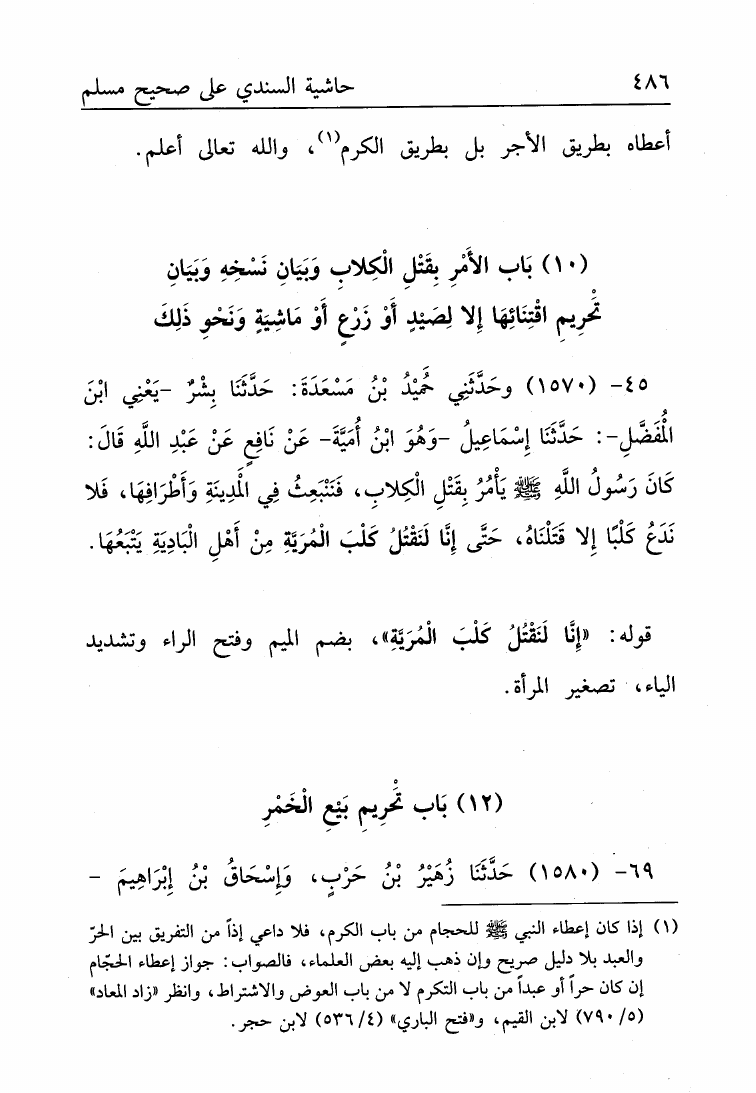 ٤٨٦ حاشية السندي على صحيح مسلم
أعطاه بطريق الأجر بل بطريق الكرم(١)، والله تعالى أعلم.
(١٠) بَاب الأَمْرِ بِقَتْلِ الْكِلابِ وَبَيَانِ نَسْخِهِ وَبَيَانِ
تَحْرِيمِ اقْتِنَائِهَا إِلا لِصَيْدٍ أَوْ زَرْعٍ أَوْ مَاشِيَةٍ وَنَحْوِ ذَلِكَ
٤٥- (١٥٧٠) وحَدَّثَنِي حُمَيْدُ بْنُ مَسْعَدَةَ: حَدَّثَنَا بِشْرٌ -يَعْنِي ابْنَ
الْمُفَضَّلِ-: حَدَّثَنَا إِسْمَاعِيلُ -وَهُوَ ابْنُ أُمَيَّةَ- عَنْ نَافِعٍ عَنْ عَبْدِ اللَّهِ قَالَ:
كَانَ رَسُولُ اللَّهِ ﷺ يَأْمُرُ بِقَتْلِ الْكِلابِ، فَنَنْبَعِثُ فِي الْمَدِينَةِ وَأَطْرَافِهَا، فَلا
نَدَعُ كَلْبًا إِلا قَتَلْنَاهُ، حَتَّى إِنَّا لَنَقْتُلُ كَلْبَ الْمُرَيَّةِ مِنْ أَهْلِ الْبَادِيَةِ يَتْبَعُهَا.
قوله: «إِنَّا لَنَقْتُلُ كَلْبَ الْمُرَيَّةِ»، بضم الميم وفتح الراء وتشديد
الياء، تصغير المرأة.
(١٢) بَاب تَحْرِيمِ بَيْعِ الْخَمْرِ
٦٩- (١٥٨٠) حَدَّثَنَا زُهَيْرُ بْنُ حَرْبٍ، وَإِسْحَاقُ بْنُ إِبْرَاهِيمَ -
(١) إذا كان إعطاء النبي ﷺ للحجام من باب الكرم، فلا داعي إذاً من التفريق بين الحرّ
والعبد بلا دليل صريح وإن ذهب إليه بعض العلماء، فالصواب: جواز إعطاء الحجّام
إن كان حراً أو عبداً من باب التكرم لا من باب العوض والاشتراط، وانظر «زاد المعاد»
(٥/ ٧٩٠) لابن القيم، و«فتح الباري» (٤/ ٥٣٦) لابن حجر.